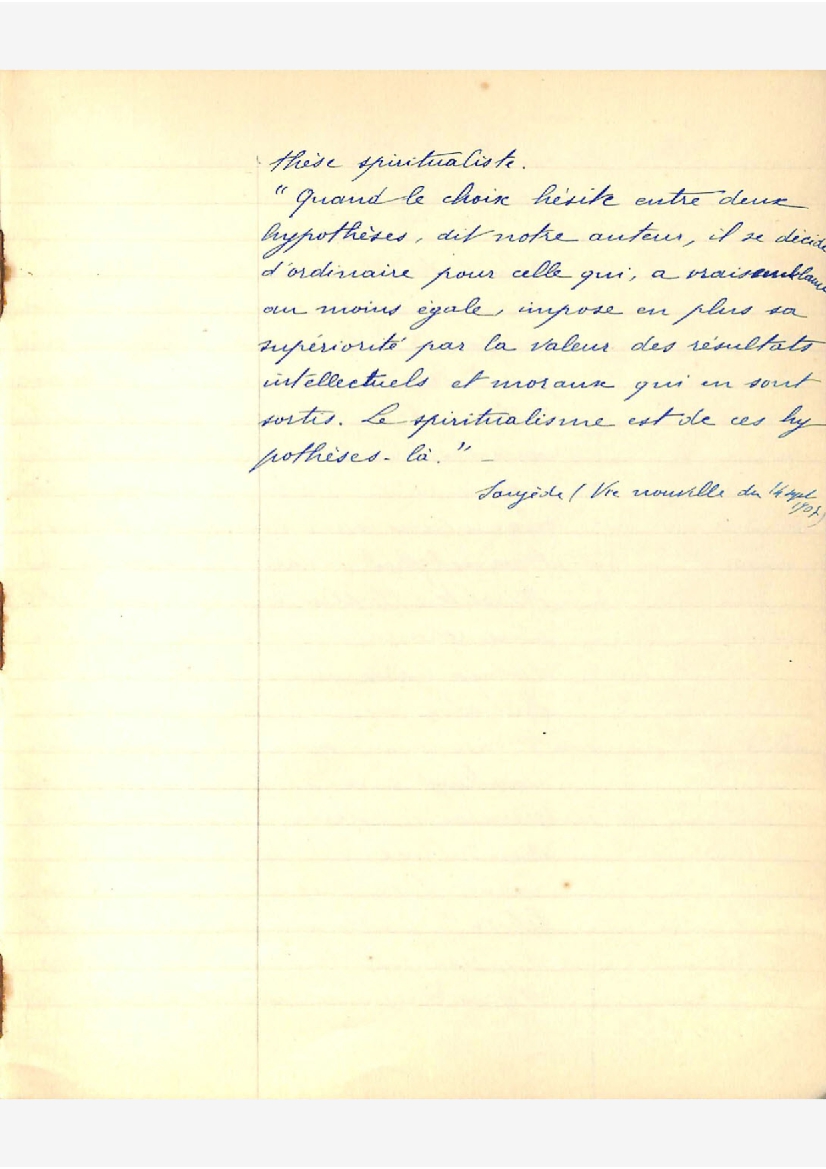 thèse spiritualiste.
“ Quand le choix hésite entre deux
hypothèses, dit notre auteur, il se décide
d'ordinaire pour celle qui, a vraisemblance
au moins égale, impose en plus sa
supériorité par la valeur des résultats
intellectuels et moraux qui en sont
sortis. Le spiritualisme est de ces hy
pothèses-là.” _
(Vie nouvelle du 14 sept